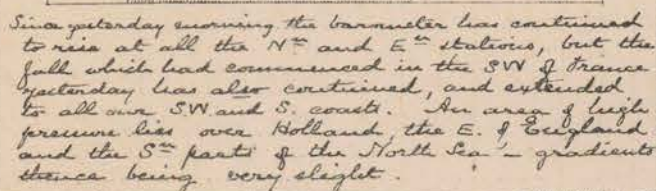 Since yesterday morning the barometer has continued
to rise at all the Nrn and Ern stations, but the
fall which had commenced in the SW of France
yesterday has also continued, and extended
to all our S.W and S. coasts. An area of high
pressure lies over Holland, the E. of England
and the Srn parts of the North Sea - gradients
thence being very slight.